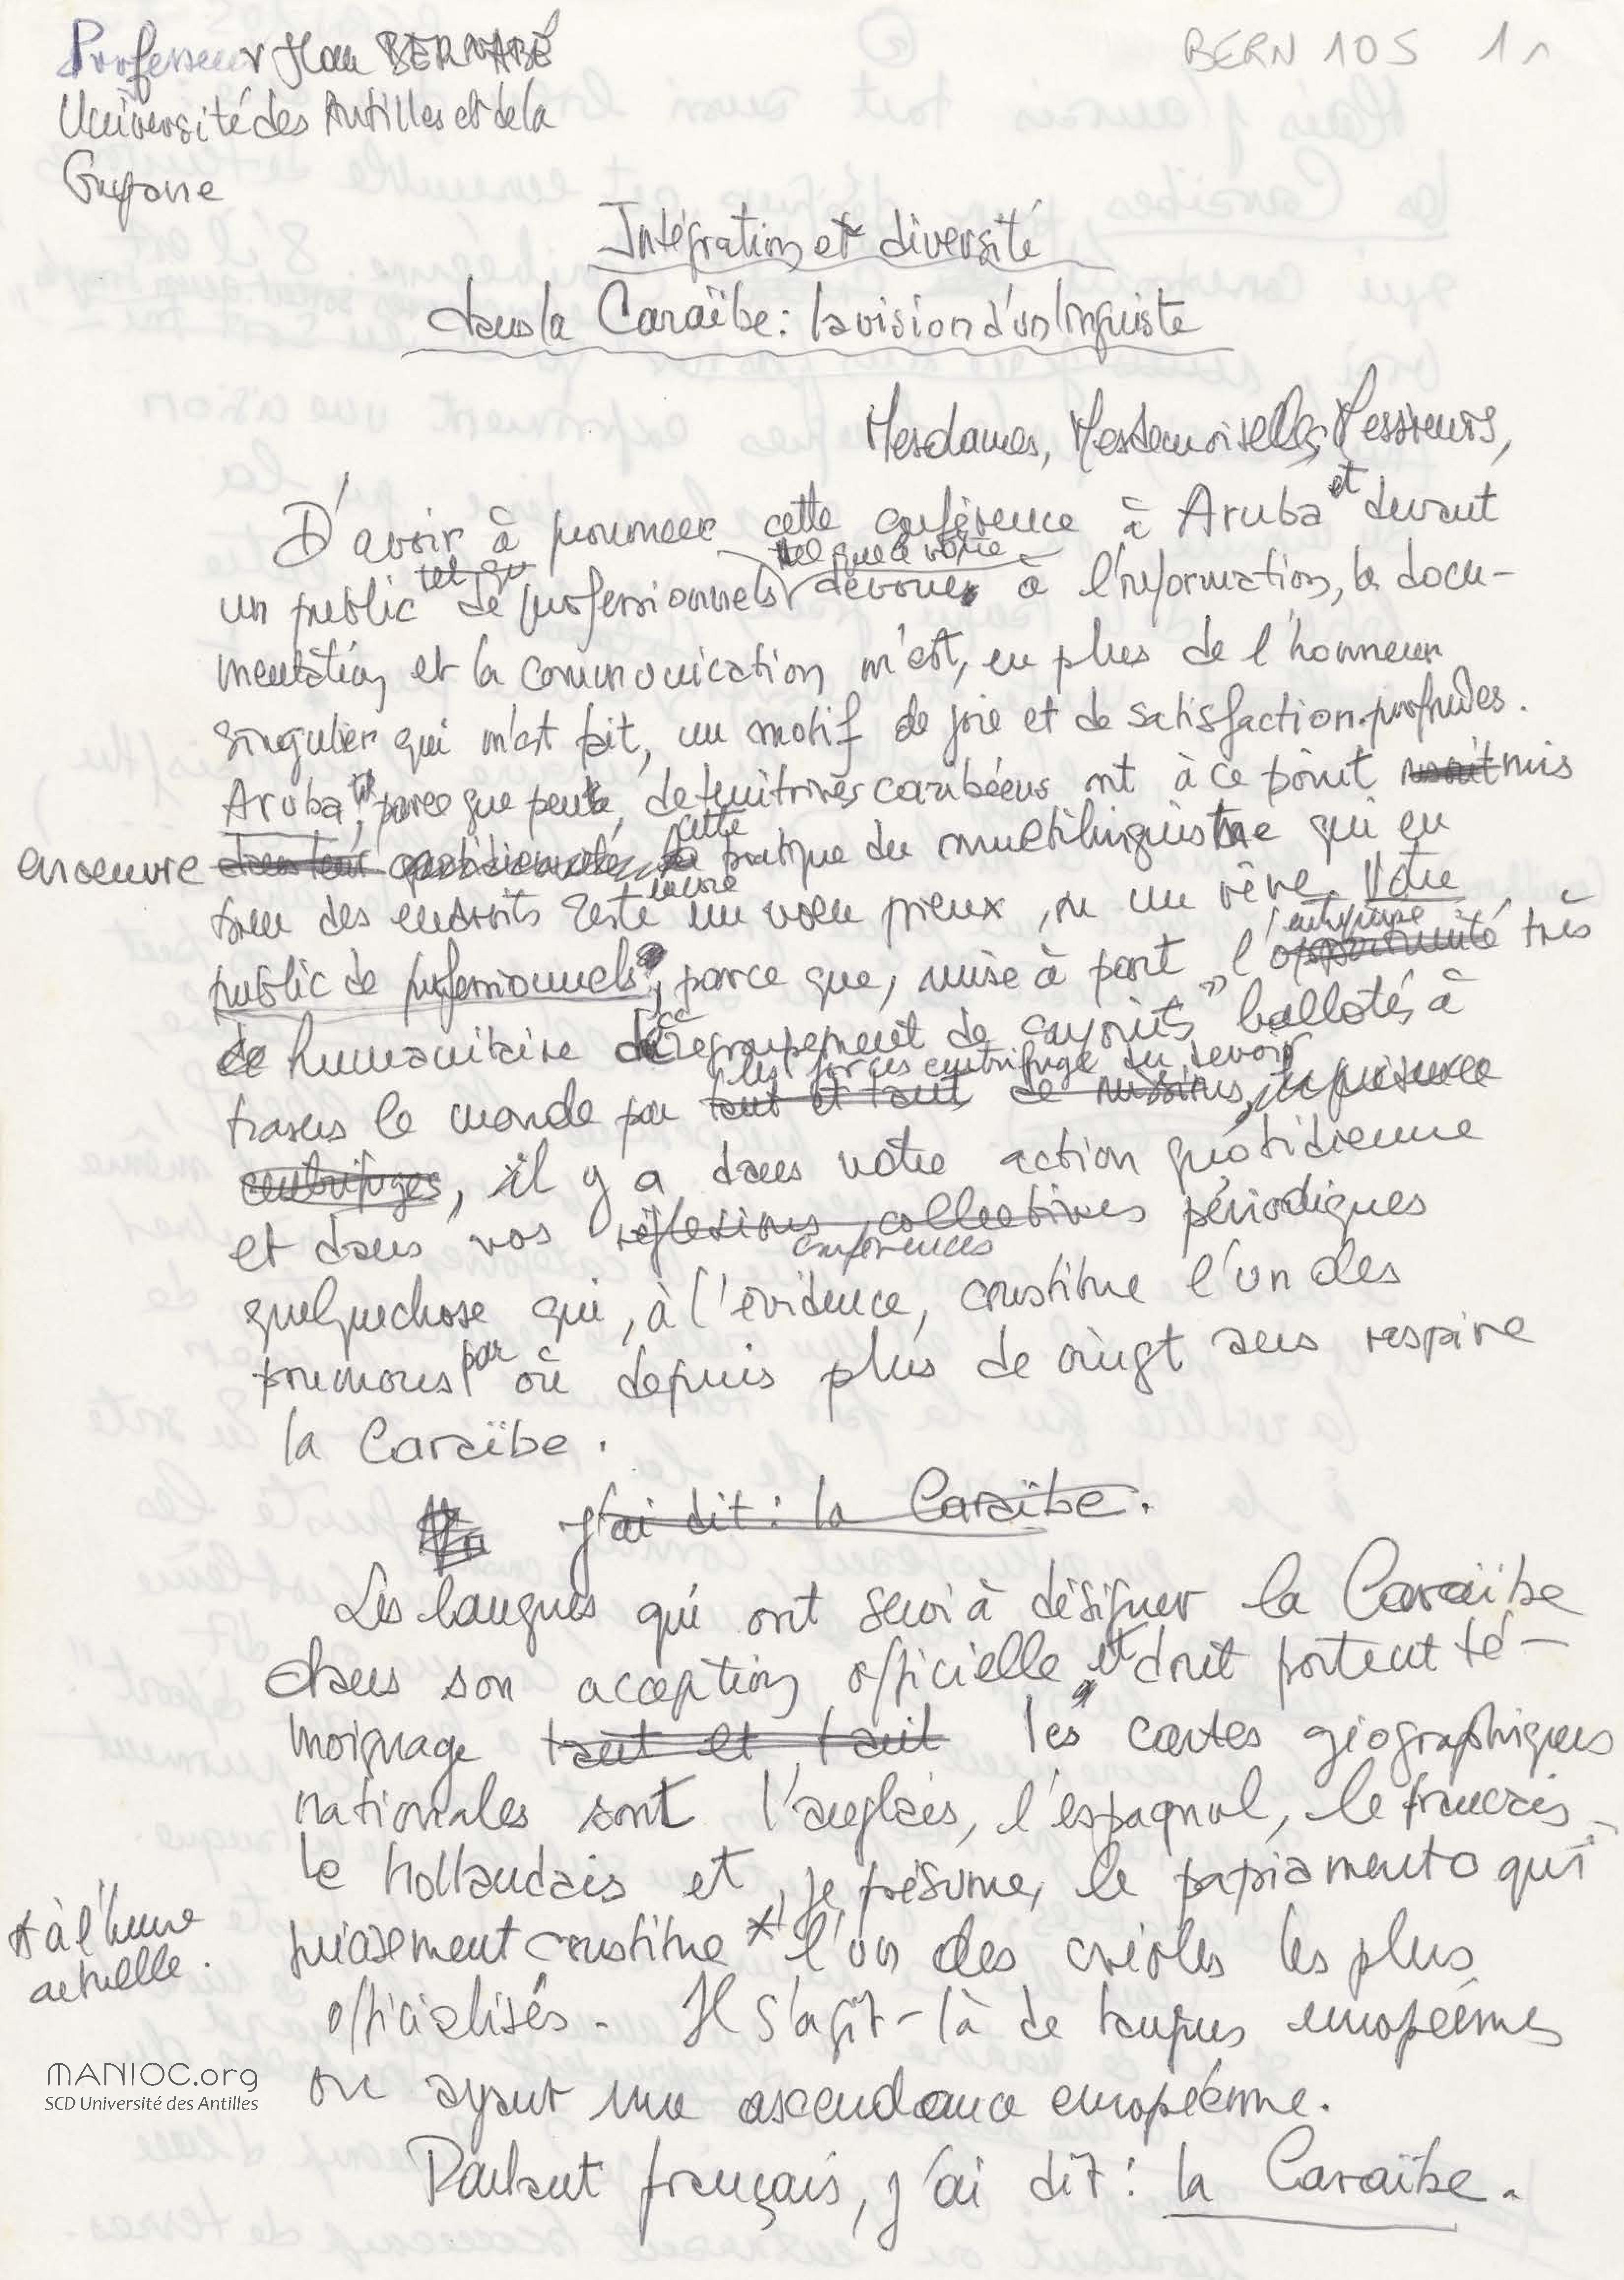 Professeur Jean BERNABÉ
BERN 105 1r
Université des Antilles et de la
Guyane
Intégration et diversité
dans la Caraïbe : la vision d'un linguiste
Mesdames, Mesdemoiselles, Messieurs,
D'avoir à prononcer cette conférence à Aruba et devant
tel que le vôtre
un public de professionnels dévoués à l'information, la docu-
mentation et la communication m'est, en plus de l'honneur
singulier qui m'est fait, un motif de joie et de satisfaction profondes.
Aruba, parce que peu de territoires caribéens ont à ce point mis
en oeuvre cette pratique du multilinguisme qui en
bien des endroits reste encore un voeu pieux, ou un rêve. Votre
public de professionnels, parce que, mise à part l'entreprise très
humanitaire de regroupement de "conjoints" ballotés à
les forces centrifuges du devoir
travers le monde par
centrifuges, il y a dans votre action quotidienne
et dans vos réflexions collectives périodiques
conférences
quelquechose qui, à l'évidence, constitue l'un des
poumons par où depuis plus de vingt ans respire
la Caraïbe.
j'ai dit : la Caraïbe.
Les langues qui ont servi à désigner la Caraïbe
dans son acception officielle et dont portent té-
moignage tant et tant les cartes géographiques
nationales sont l'anglais, l'espagnol, le français,
le hollandais et, je présume, le papiamento qui
précisément constitue * l'un des créoles les plus
* à l'heure
actuelle.
officialisés. Il s'agit-là de langues européennes
ou ayant une ascendance européenne.
Parlant français, j'ai dit : la Caraïbe.
MANIOC.org
SCD Université des Antilles